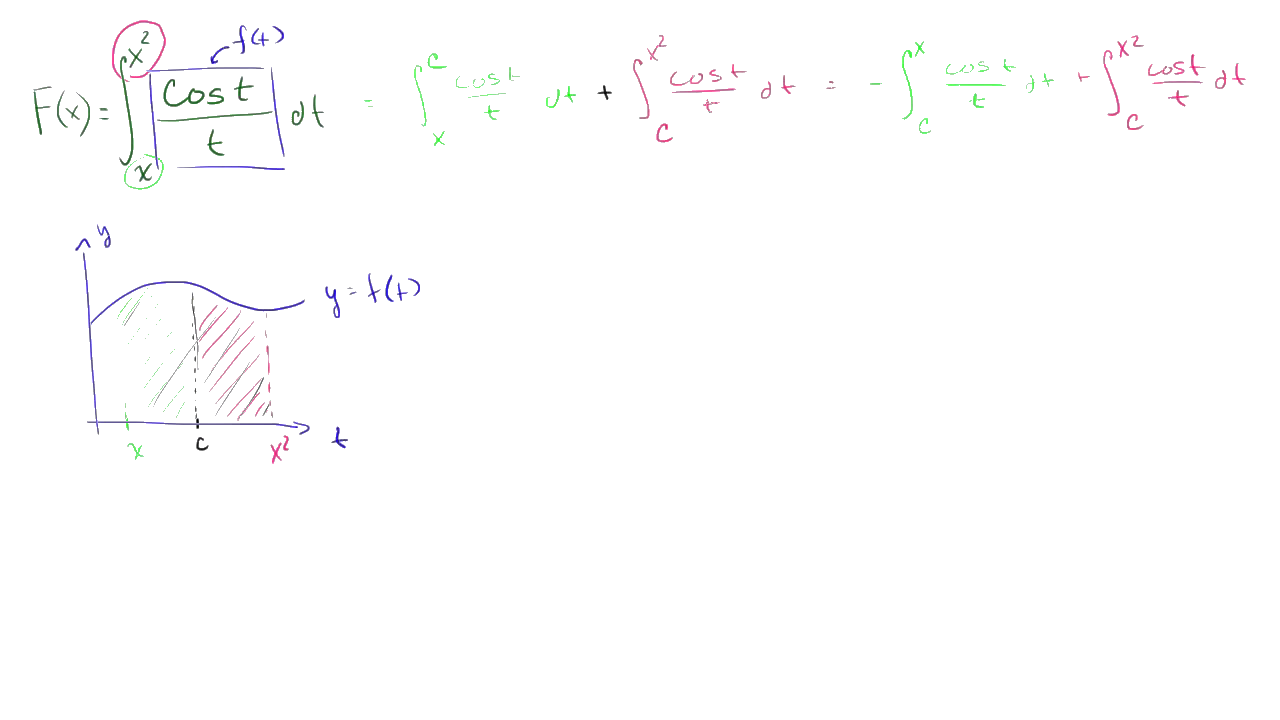 f(t)
F(x) = ∫_x^{x²} cos t / t dt = ∫_x^c cos t / t dt + ∫_c^{x²} cos t / t dt = - ∫_c^x cos t / t dt + ∫_c^{x²} cos t / t dt
y
y = f(t)
x c x² t